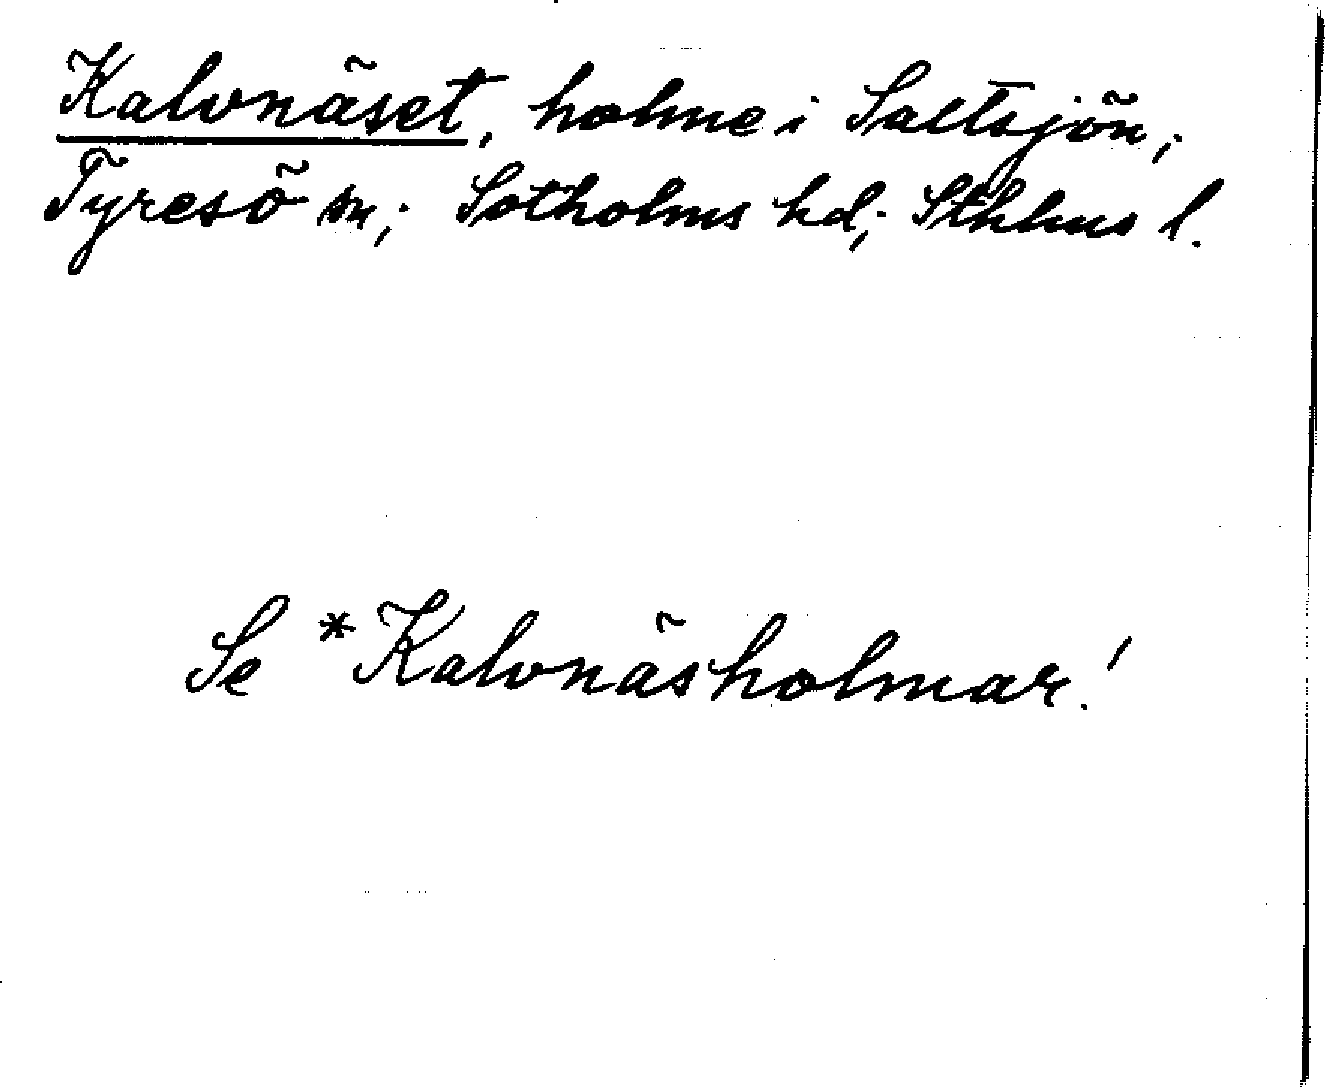 Kalvnäset, holme i Saltsjön;
Tyresö sn; Sotholms hd; Sthlms l.
Se *Kalvnäsholmar!